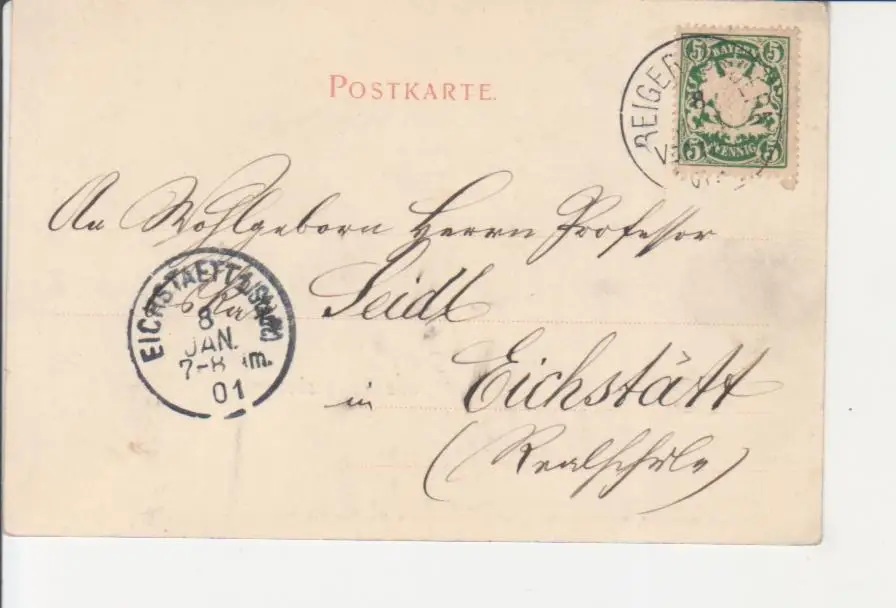 POSTKARTE.
5 BAYERN 5
5 PFENNIG 5
8
An Wohlgeborn Herrn Professor
Seidl
in Eichstätt
(Realschule)
8
JAN.
7-8
01